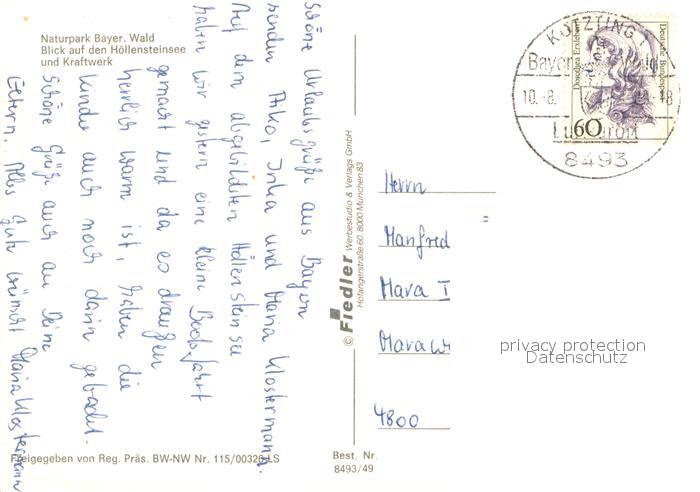 Naturpark Bayer. Wald
Blick auf den Höllensteinsee
und Kraftwerk
Schöne Urlaubsgrüße aus Bayern
senden Heiko, Inka und Maria Klostermann.
Auf dem abgebildeten Höllensteinsee
haben wir gestern eine kleine Bootsfahrt
gemacht und da es draußen
herrlich warm ist, haben die
Kinder auch noch darin gebadet.
Schöne Grüße auch an Deine
Eltern. Alles Gute wünscht Maria Klostermann
Freigegeben von Reg. Präs. BW-NW Nr. 115/00326 LS
© Fiedler Werbestudio & Verlags GmbH
Hofangerstraße 60, 8000 München 83
Best. Nr.
8493/49
KÖTZTING 1
10.-8.
-18
Luftkurort
8493
Dorothea Erxleben
Deutsche Bundespost
60
Herrn
Manfred
4800
privacy protection
Datenschutz